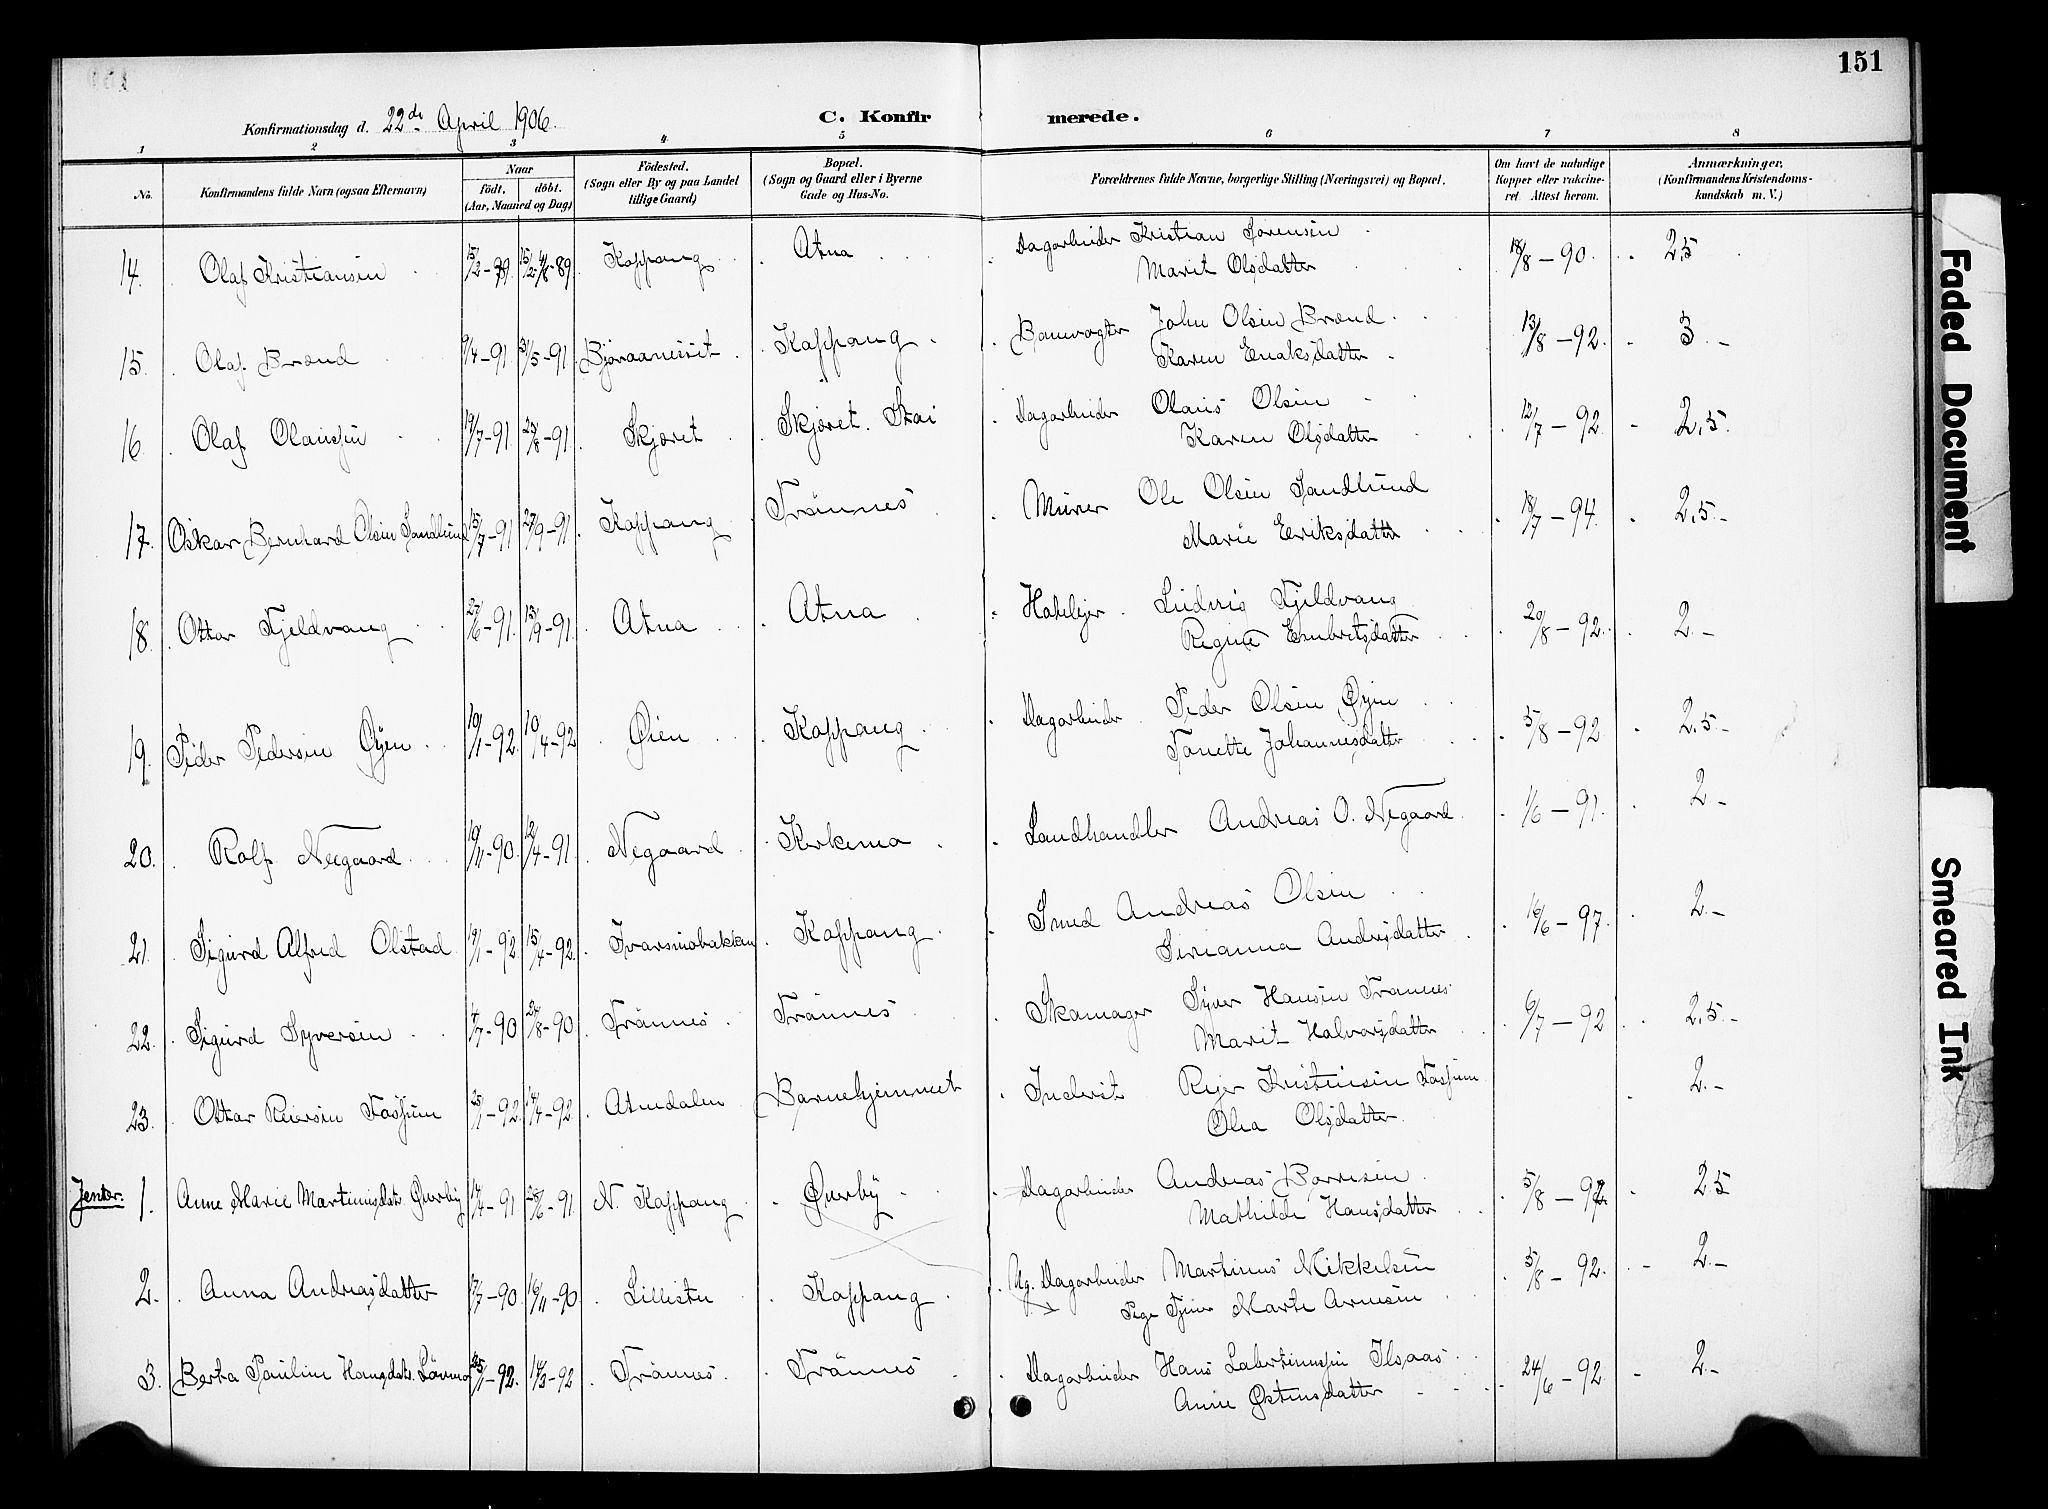 151
Konfirmationsdag d. 22de April 1906.
C. Konfirmerede.
1 2 3 4 5 6 7 8
No.
Konfirmandens fulde Navn (ogsaa Efternavn)
Naar
født. døbt.
(Aar, Maaned og Dag)
Födested.
(Sogn eller By og paa Landet
tillige Gaard)
Bopæl.
(Sogn og Gaard eller i Byerne
Gade og Hus-No.
Forældrenes fulde Navne, borgerlige Stilling (Næringsvei) og Bopæl.
Om havt de naturlige
Kopper eller vakcine-
ret. Attest herom.
Anmærkninger,
(Konfirmandens Kristendoms-
kundskab m. V.)
14. Olaf Kristiansen Koppang Atna Dagarbeider Kristian Sørensen 18/8-90. 2,5
Marit Olsdatter
15. Olaf Brænd 9/4-91 31/5-91 Bjøraaneset Koppang Banevogter John Olsen Brænd 13/8-92. 3.-
Karen Enaksdatter
16. Olaf Olausen 19/7-91 23/8-91 Skjæret Skjæret. Stai Dagarbeider Olaus Olsen 12/7-92. 2,5.
Karen Olsdatter
17. Oskar Bernhard Olsen Sandlund 15/7-91 27/9-91 Koppang Trønnes Murer Ole Olsen Sandlund 18/7-94. 2,5.-
Marie Eriksdatter
18. Ottar Fjeldvang 27/6-91. 13/9-91. Atna Atna Hotelejer Ludvig Fjeldvang 20/8-92. 2.-
Regine Embretsdatter
19. Peder Pedersen Øyen 10/1-92. 10/4-92 Øien Koppang Dagarbeider Peder Olsen Øyen 5/8-92 2,5-
Tonette Johannesdatter
20. Rolf Neegaard 19/11-90. 12/4-91. Negaard Kirkemo Landhandler Andreas O. Negaard 1/6-91. 2-
21. Sigurd Alfred Olstad 19/1-92. 15/4-92. Ivarsmobakken Koppang Smed Andreas Olsen 16/6-97. 2.-
Serianna Andrsdatter
22. Sigurd Syversen 4/7-90 24/8-90 Trønnes Trønnes Skomager Syver Hansen Trønnes 6/7-92 2,5.-
Marit Halvorsdatter
23. Ottar Reiersen Fossum 25/1-92. 14/4-92. Atnedalen Barnehjemmet Inderst Reier Kristensen Fossum 2.-
Olea Olsdatter
Jenter. 1. Anne Marie Martinusdatr. Øverby 17/4-91 28/6-91. N. Koppang Øverby Dagarbeider Andreas Borresen 5/8-92 25
Mathilde Hansdatter
2. Anna Andreasdatter 17/7-90. 16/11-90. Lillestu Koppang Ug. Dagarbeider Martinus Mikkelsen 5/8-92. 2.-
Pige Marte Arnesen
3. Berta Pauline Hansdatr. Lønmo 25/1-92. 14/3-92 Trønnes Trønnes Dagarbeider Hans Ilsaas 24/6-92. 2.-
Anne Østensdatter
Faded Document
Smeared Ink